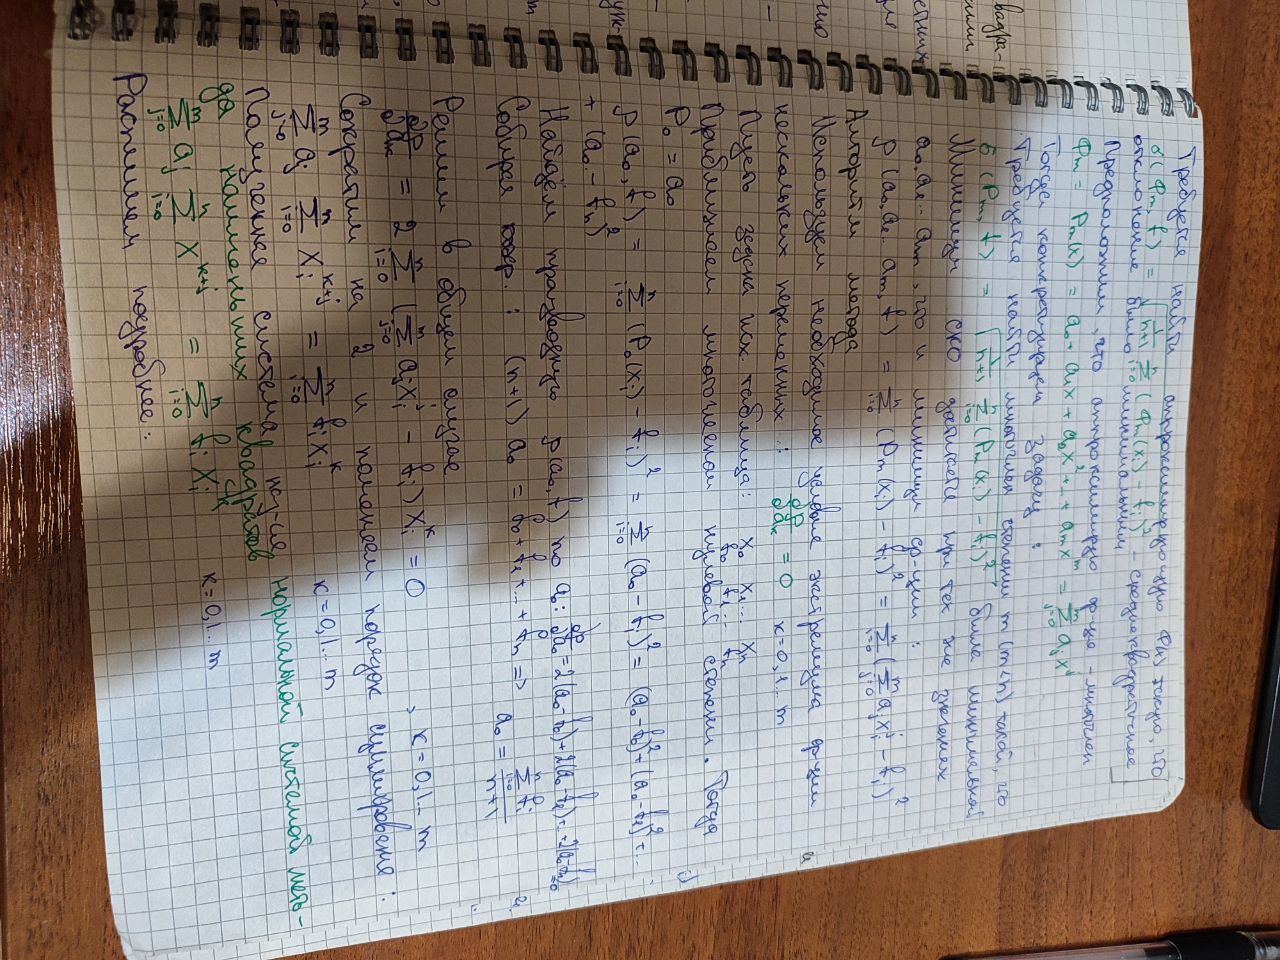 Требуется найти аппроксимирующую Ф(x) такую, что
σ(Фm, f) = √(1/(n+1) Σ_{i=0}^{n} (Фm(xi) - fi)²) - среднеквадратичное
отклонение было минимальным
Предположим, что аппроксимирую ф-ция - многочлен
Фm = Pm(x) = a₀ + a₁x + a₂x² + ... + amx^m = Σ_{j=0}^{m} aj x^j
Тогда конкретизируем задачу:
Требуется найти многочлен степени m (m<n) такой, что
σ(Pm, f) = √(1/(n+1) Σ_{i=0}^{n} (Pm(xi) - fi)²) была минимальной
Минимум ско достигается при тех же значениях
a₀, a₁... am, что и минимум ф-ции:
ρ(a₀, a₁.. am, f) = Σ_{i=0}^{n} (Pm(xi) - fi)² = Σ_{i=0}^{n} (Σ_{j=0}^{m} aj xi^j - fi)²
Алгоритм метода
Используем необходимое условие экстремума ф-ции
нескольких переменных: ∂ρ/∂aк = 0 к=0,1... m
Пусть задана исх. таблица: x₀ x₁... xn
f₀ f₁... fn
Приближаем многочленом нулевой степени. Тогда
P₀ = a₀
ρ(a₀, f) = Σ_{i=0}^{n} (P₀(xi) - fi)² = Σ_{i=0}^{n} (a₀ - fi)² = (a₀-f₀)² + (a₀-f₁)² + ...
+ (a₀ - fn)²
Найдём производную ρ(a₀, f) по a₀: ∂ρ/∂a₀ = 2(a₀-f₀) + 2(a₀-f₁) + .. + 2(a₀-fn) = 0
Собирая коэф.: (n+1) a₀ = f₀ + f₁ + ... + fn => a₀ = Σ_{i=0}^{n} fi / (n+1)
Решим в общем случае
∂ρ/∂aк = 2 Σ_{i=0}^{n} (Σ_{j=0}^{m} aj xi^j - fi) xi^к = 0 , к=0,1... m
Сократим на 2 и поменяем порядок суммирования:
Σ_{j=0}^{m} aj Σ_{i=0}^{n} xi^{к+j} = Σ_{i=0}^{n} fi xi^к к=0,1... m
Полученная система наз-ся нормальной системой мето-
да наименьших квадратов
Σ_{j=0}^{m} aj Σ_{i=0}^{n} x^{к+j} = Σ_{i=0}^{n} fi xi^к к=0,1... m
Распишем подробнее: